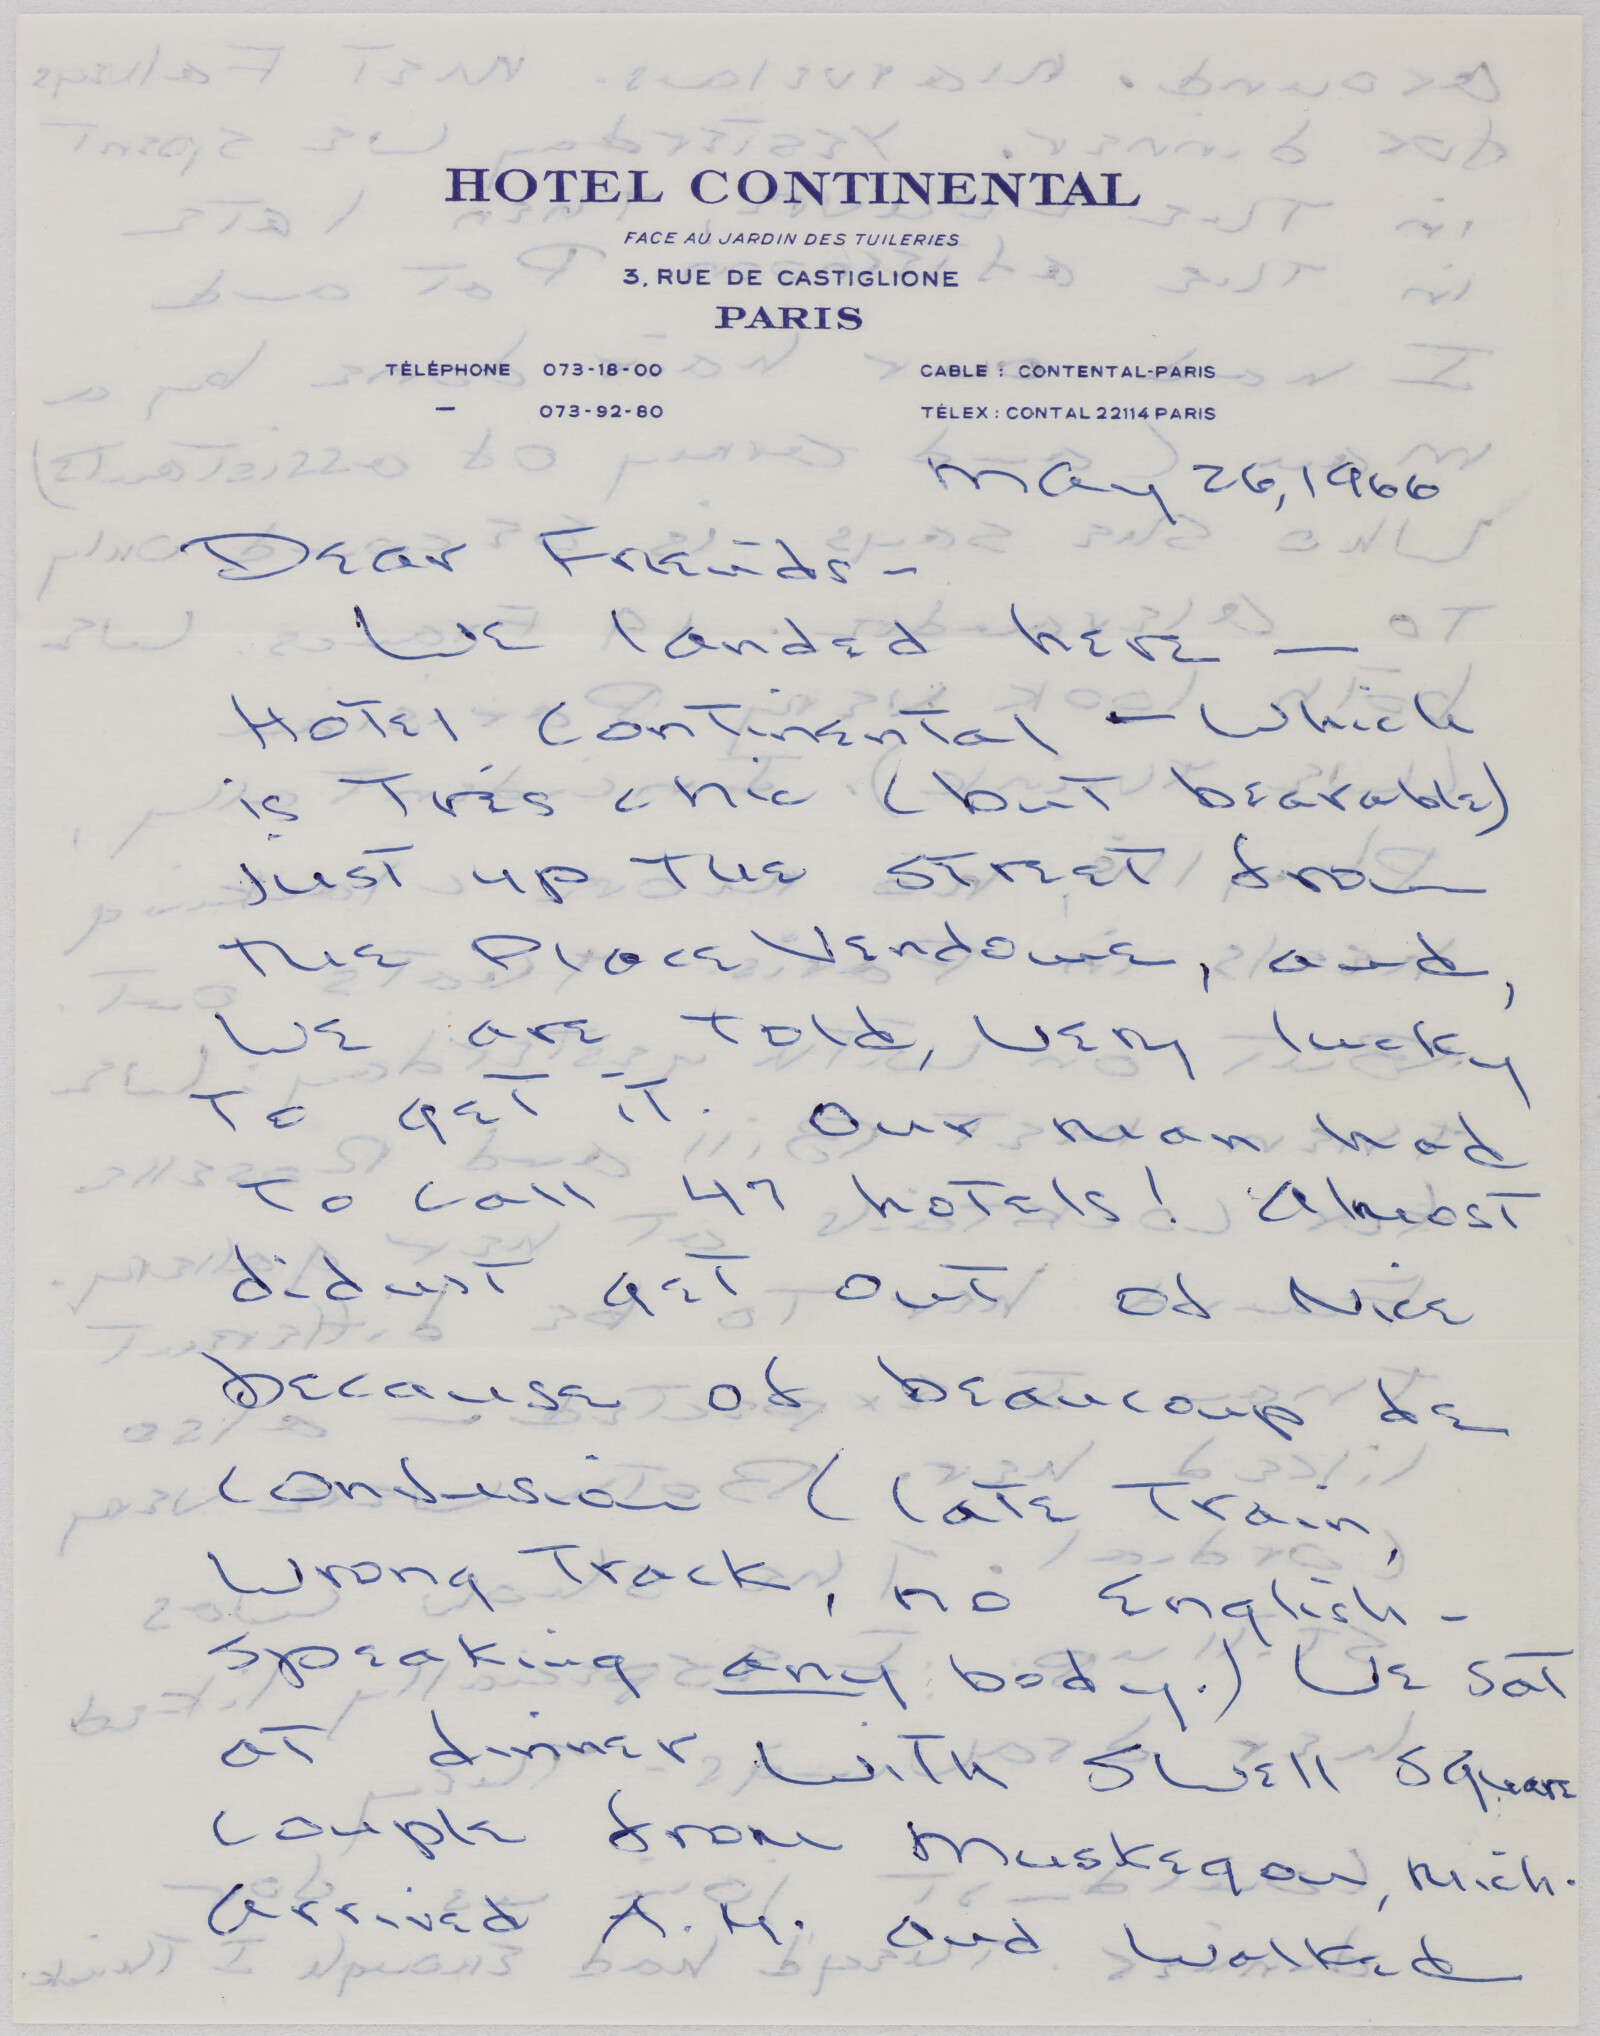 HOTEL CONTINENTAL
FACE AU JARDIN DES TUILERIES
3, RUE DE CASTIGLIONE
PARIS
TÉLÉPHONE 073-18-00
— 073-92-80
CABLE : CONTENTAL-PARIS
TÉLEX : CONTAL 22114 PARIS
May 26, 1966
Dear Friends -
We landed here —
Hotel Continental — which
is très chic (but bearable)
just up the street from
the Place Vendome, and,
we are told, very lucky
to get it. Our man had
to call 47 hotels! Almost
didn't get out of Nice
because of beaucoup de
confusion (late train,
wrong track, no English-
speaking any body.) We sat
at dinner with swell square
couple from Muskegon, Mich.
Arrived A.M. and walked